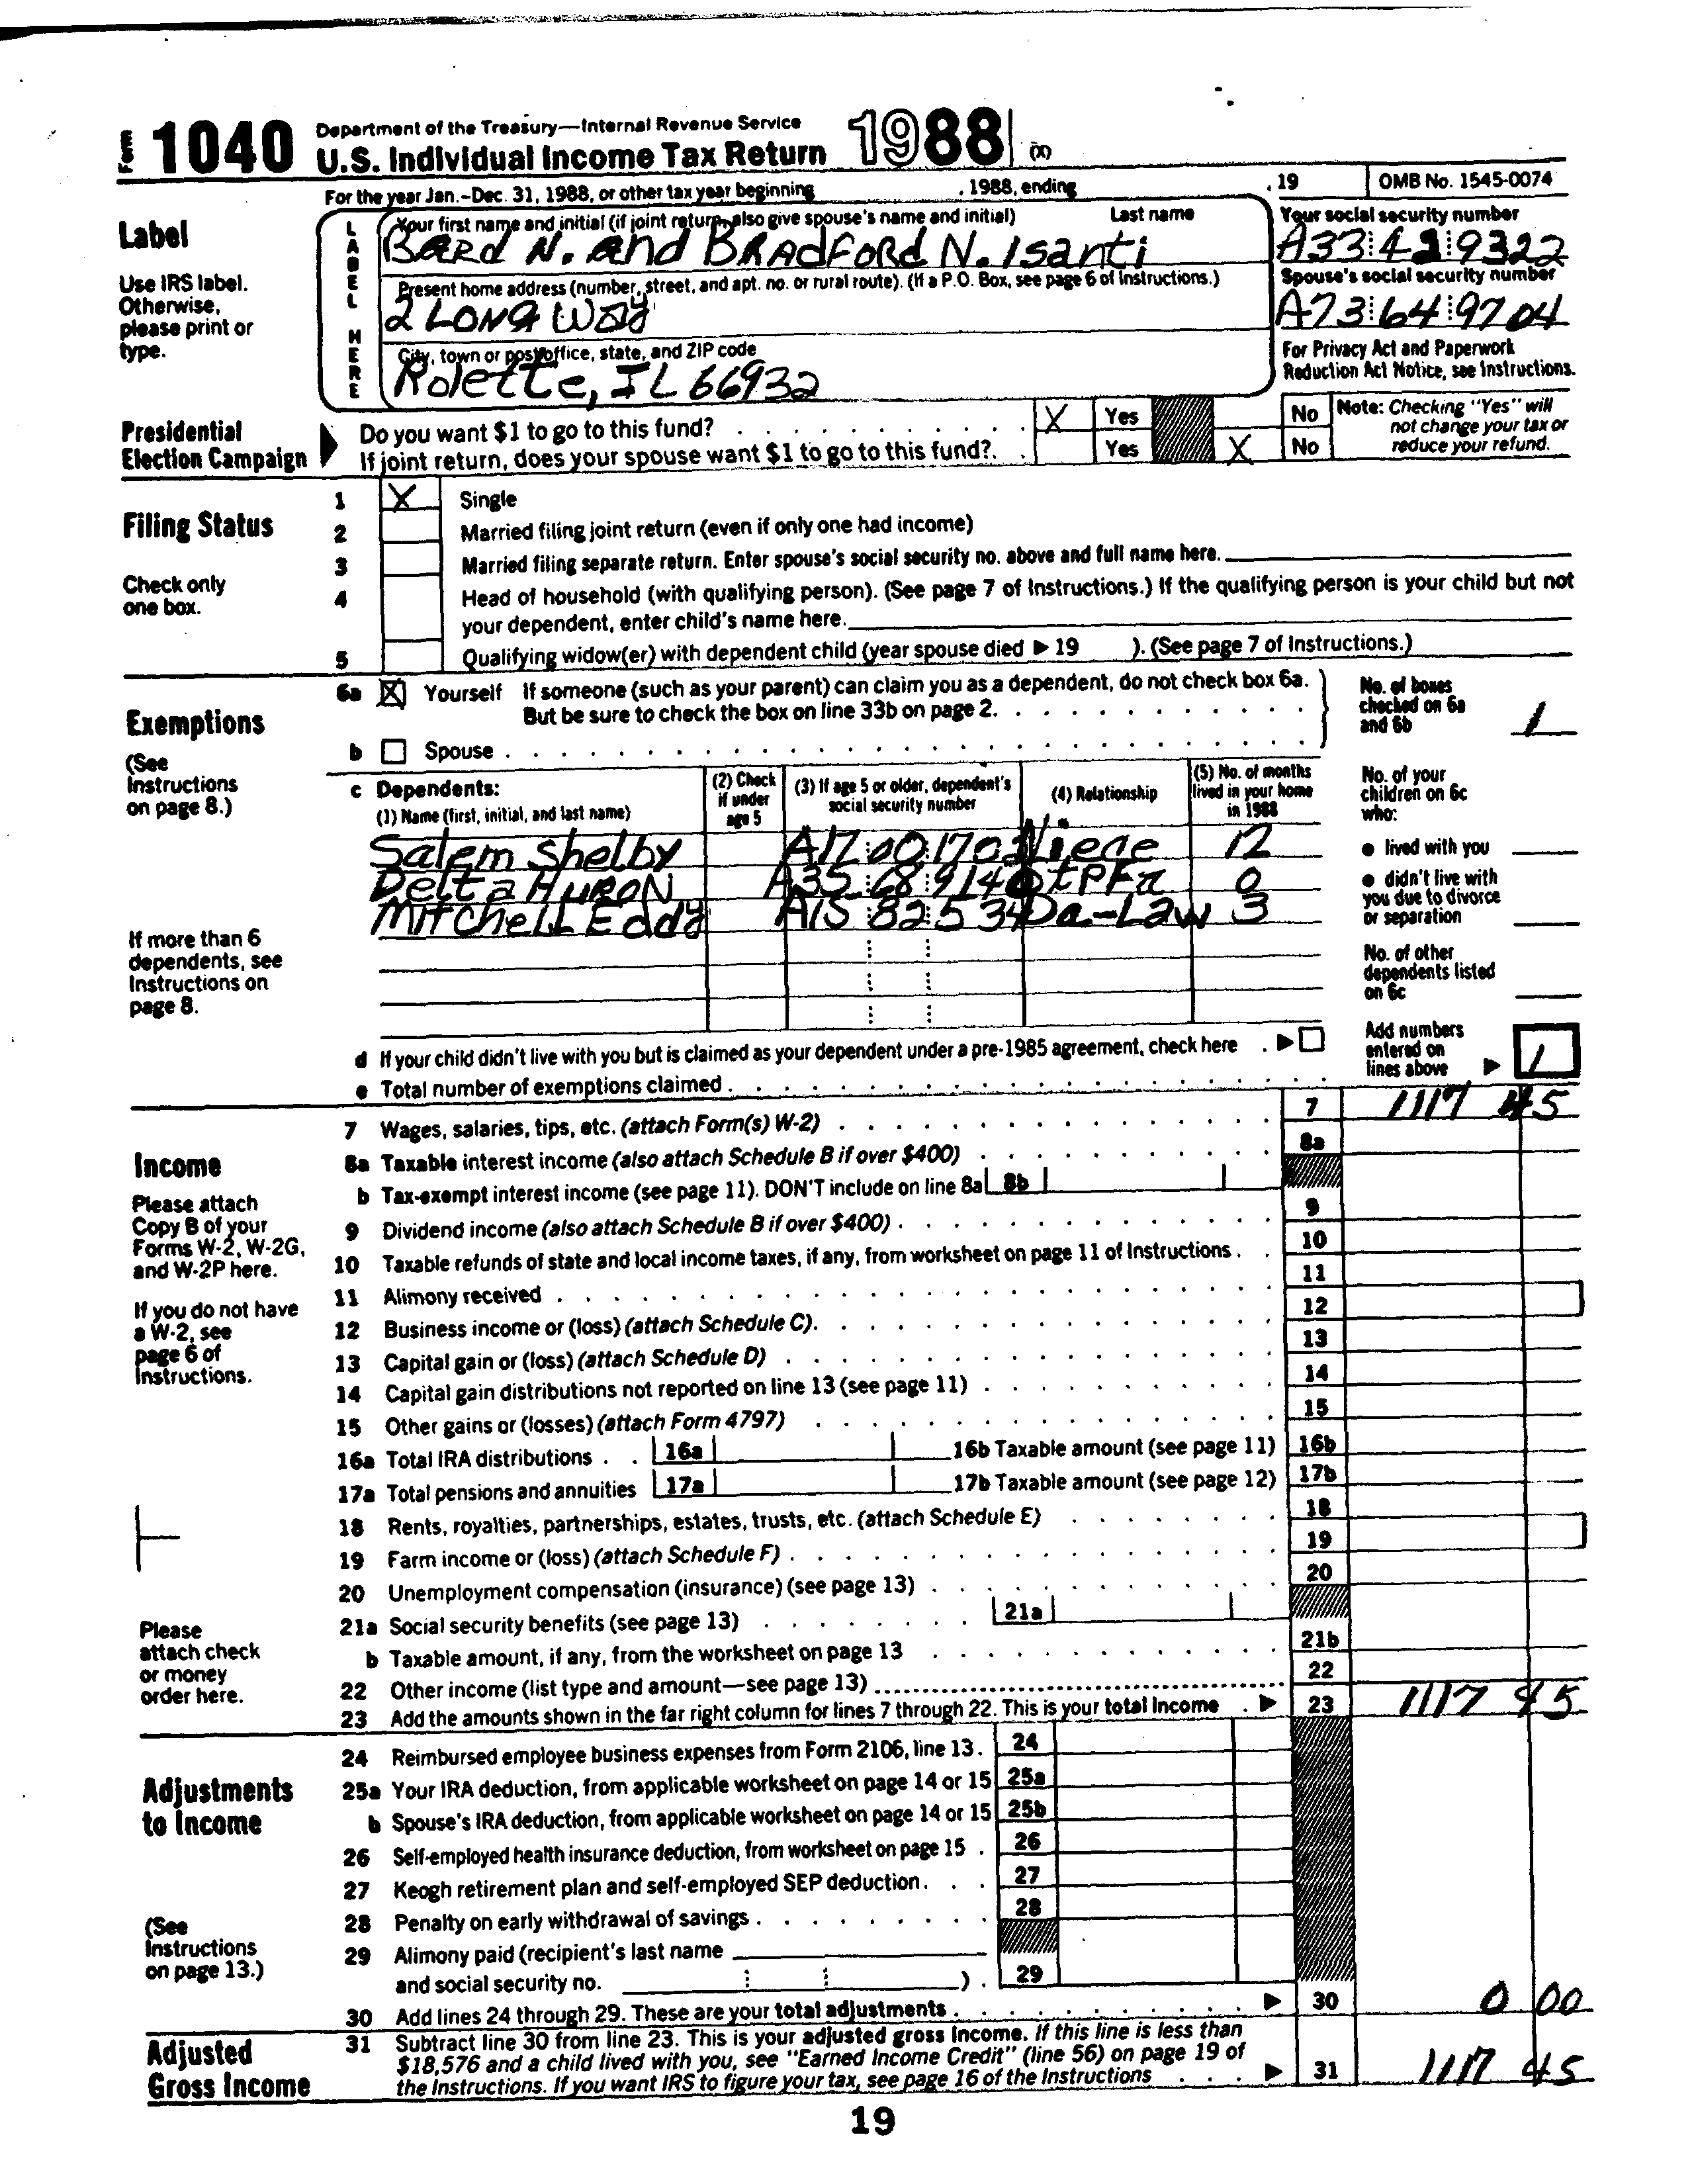 Form 1040 Department of the Treasury—Internal Revenue Service
U.S. Individual Income Tax Return 1988 (X)
For the year Jan.–Dec. 31, 1988, or other tax year beginning , 1988, ending , 19 OMB No. 1545-0074
Label
Use IRS label.
Otherwise,
please print or
type.
LABEL HERE
Your first name and initial (if joint return, also give spouse's name and initial) Last name
Bard N. and BRADFORD N. Isanti
Present home address (number, street, and apt. no. or rural route). (If a P.O. Box, see page 6 of Instructions.)
2 LONG WAY
City, town or post office, state, and ZIP code
Rolette, IL 66932
Your social security number
A33 9322
Spouse's social security number
A73 64 9704
For Privacy Act and Paperwork
Reduction Act Notice, see Instructions.
Presidential
Election Campaign
Do you want $1 to go to this fund? X Yes No
If joint return, does your spouse want $1 to go to this fund?. Yes X No
Note: Checking "Yes" will
not change your tax or
reduce your refund.
Filing Status
Check only
one box.
1 X Single
2 Married filing joint return (even if only one had income)
3 Married filing separate return. Enter spouse's social security no. above and full name here.
4 Head of household (with qualifying person). (See page 7 of Instructions.) If the qualifying person is your child but not
your dependent, enter child's name here.
5 Qualifying widow(er) with dependent child (year spouse died ▶ 19 ). (See page 7 of Instructions.)
Exemptions
(See
Instructions
on page 8.)
6a X Yourself If someone (such as your parent) can claim you as a dependent, do not check box 6a.
But be sure to check the box on line 33b on page 2.
b Spouse
No. of boxes
checked on 6a
and 6b 1
c Dependents:
(1) Name (first, initial, and last name)
(2) Check
if under
age 5
(3) If age 5 or older, dependent's
social security number
(4) Relationship
(5) No. of months
lived in your home
in 1988
Salem Shelby A17 00 1703 Niece 12
Delta HURON A35 68 9140 0
Mitchell Eddy A15 82 534 Da-Law 3
If more than 6
dependents, see
Instructions on
page 8.
No. of your
children on 6c
who:
● lived with you
● didn't live with
you due to divorce
or separation
No. of other
dependents listed
on 6c
d If your child didn't live with you but is claimed as your dependent under a pre-1985 agreement, check here ▶
e Total number of exemptions claimed
Add numbers
entered on
lines above ▶ 1
Income
Please attach
Copy B of your
Forms W-2, W-2G,
and W-2P here.
If you do not have
a W-2, see
page 6 of
Instructions.
Please
attach check
or money
order here.
7 Wages, salaries, tips, etc. (attach Form(s) W-2) 7 1117 45
8a Taxable interest income (also attach Schedule B if over $400) 8a
b Tax-exempt interest income (see page 11). DON'T include on line 8a 8b
9 Dividend income (also attach Schedule B if over $400) 9
10 Taxable refunds of state and local income taxes, if any, from worksheet on page 11 of Instructions 10
11 Alimony received 11
12 Business income or (loss) (attach Schedule C). 12
13 Capital gain or (loss) (attach Schedule D) 13
14 Capital gain distributions not reported on line 13 (see page 11) 14
15 Other gains or (losses) (attach Form 4797) 15
16a Total IRA distributions 16a 16b Taxable amount (see page 11) 16b
17a Total pensions and annuities 17a 17b Taxable amount (see page 12) 17b
18 Rents, royalties, partnerships, estates, trusts, etc. (attach Schedule E) 18
19 Farm income or (loss) (attach Schedule F) 19
20 Unemployment compensation (insurance) (see page 13) 20
21a Social security benefits (see page 13) 21a
b Taxable amount, if any, from the worksheet on page 13 21b
22 Other income (list type and amount—see page 13) 22
23 Add the amounts shown in the far right column for lines 7 through 22. This is your total income ▶ 23 1117 45
Adjustments
to Income
(See
Instructions
on page 13.)
24 Reimbursed employee business expenses from Form 2106, line 13. 24
25a Your IRA deduction, from applicable worksheet on page 14 or 15 25a
b Spouse's IRA deduction, from applicable worksheet on page 14 or 15 25b
26 Self-employed health insurance deduction, from worksheet on page 15 26
27 Keogh retirement plan and self-employed SEP deduction 27
28 Penalty on early withdrawal of savings 28
29 Alimony paid (recipient's last name
and social security no. ) 29
30 Add lines 24 through 29. These are your total adjustments ▶ 30 0 00
Adjusted
Gross Income
31 Subtract line 30 from line 23. This is your adjusted gross income. If this line is less than
$18,576 and a child lived with you, see "Earned Income Credit" (line 56) on page 19 of
the Instructions. If you want IRS to figure your tax, see page 16 of the Instructions ▶ 31 1117 45
19